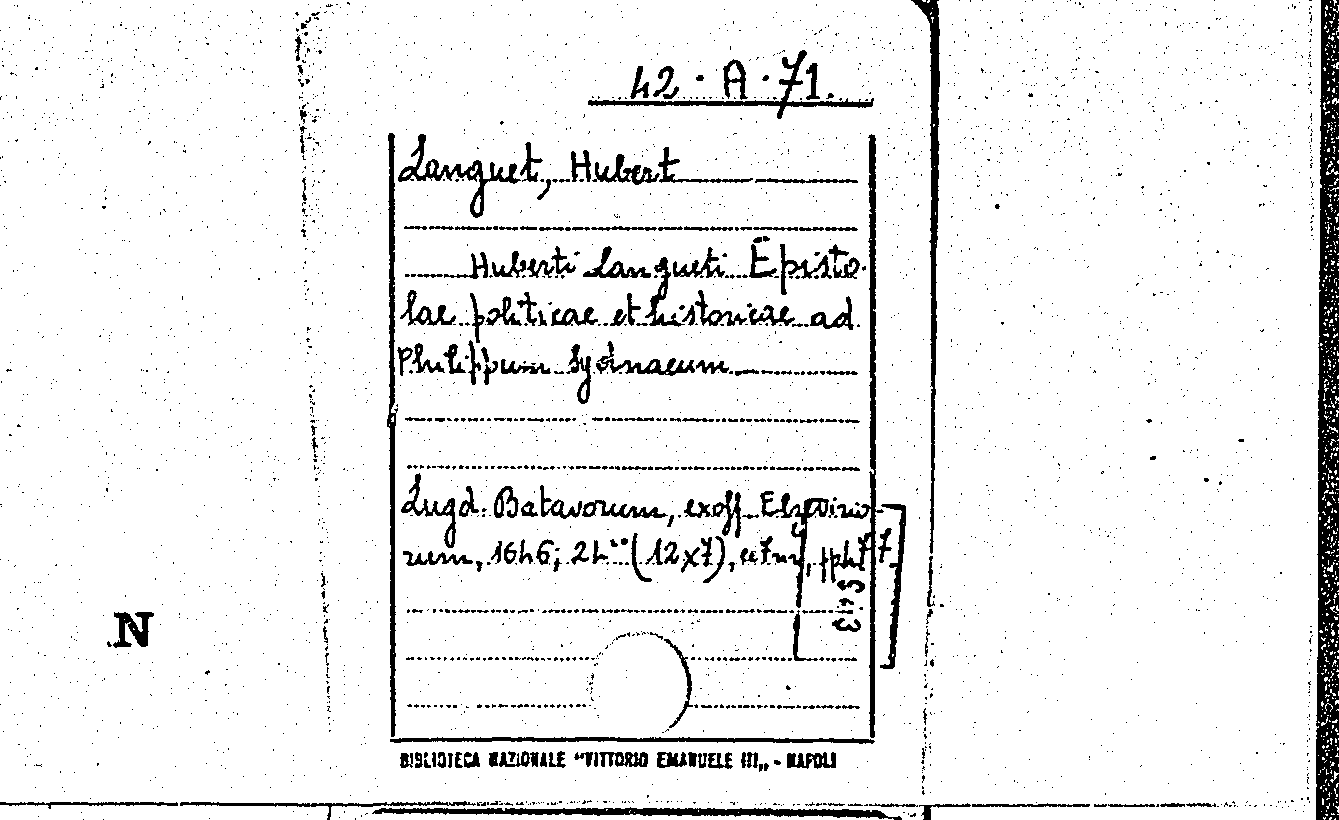 42 · A · 71.
Languet, Hubert
Huberti Langueti Episto-
lae politicae et historicae ad
Philippum Sydnaeum
Lugd. Batavorum, ex off. Elzevirio-
rum, 1646; 24° (12x7),
N
BIBLIOTECA NAZIONALE "VITTORIO EMANUELE III„ - NAPOLI